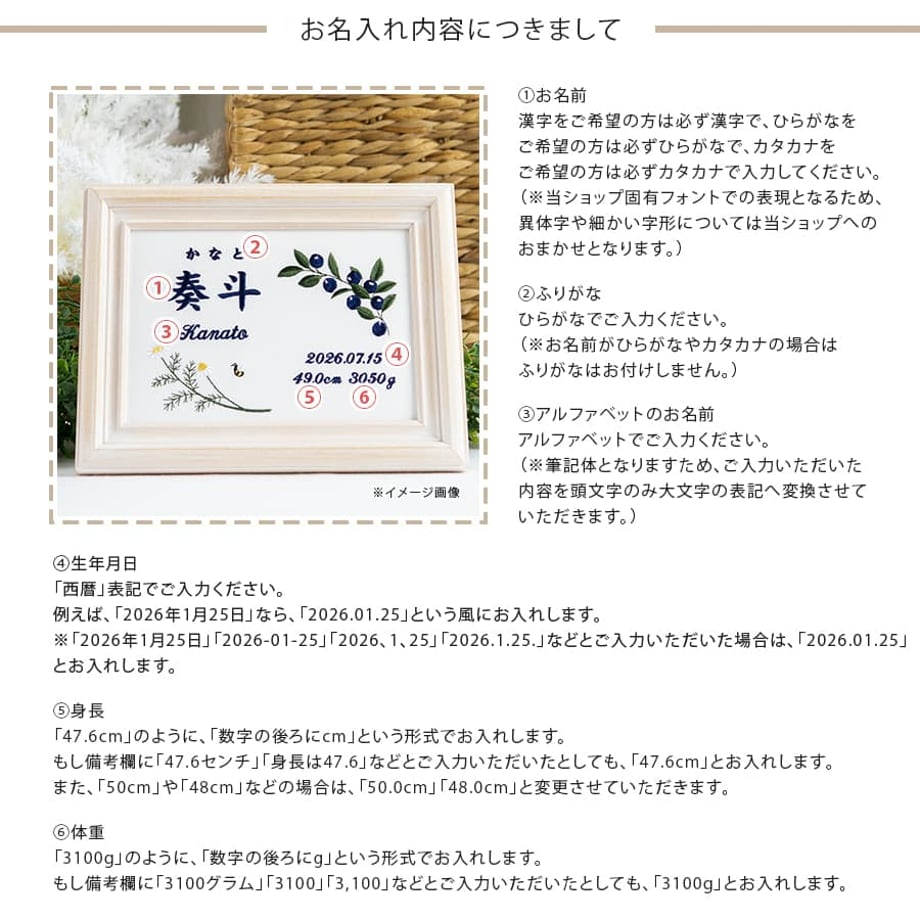 お名入れ内容につきまして
かなと
②
①
奏斗
③
Kanato
2026.07.15
④
49.0cm 3050g
⑤
⑥
※イメージ画像
①お名前
漢字をご希望の方は必ず漢字で、ひらがなを
ご希望の方は必ずひらがなで、カタカナを
ご希望の方は必ずカタカナで入力してください。
（※当ショップ固有フォントでの表現となるため、
異体字や細かい字形については当ショップへの
おまかせとなります。）
②ふりがな
ひらがなでご入力ください。
（※お名前がひらがなやカタカナの場合は
ふりがなはお付けしません。）
③アルファベットのお名前
アルファベットでご入力ください。
（※筆記体となりますため、ご入力いただいた
内容を頭文字のみ大文字の表記へ変換させて
いただきます。）
④生年月日
「西暦」表記でご入力ください。
例えば、「2026年1月25日」なら、「2026.01.25」という風にお入れします。
※「2026年1月25日」「2026-01-25」「2026、1、25」「2026.1.25.」などとご入力いただいた場合は、「2026.01.25」
とお入れします。
⑤身長
「47.6cm」のように、「数字の後ろにcm」という形式でお入れします。
もし備考欄に「47.6センチ」「身長は47.6」などとご入力いただいたとしても、「47.6cm」とお入れします。
また、「50cm」や「48cm」などの場合は、「50.0cm」「48.0cm」と変更させていただきます。
⑥体重
「3100g」のように、「数字の後ろにg」という形式でお入れします。
もし備考欄に「3100グラム」「3100」「3,100」などとご入力いただいたとしても、「3100g」とお入れします。